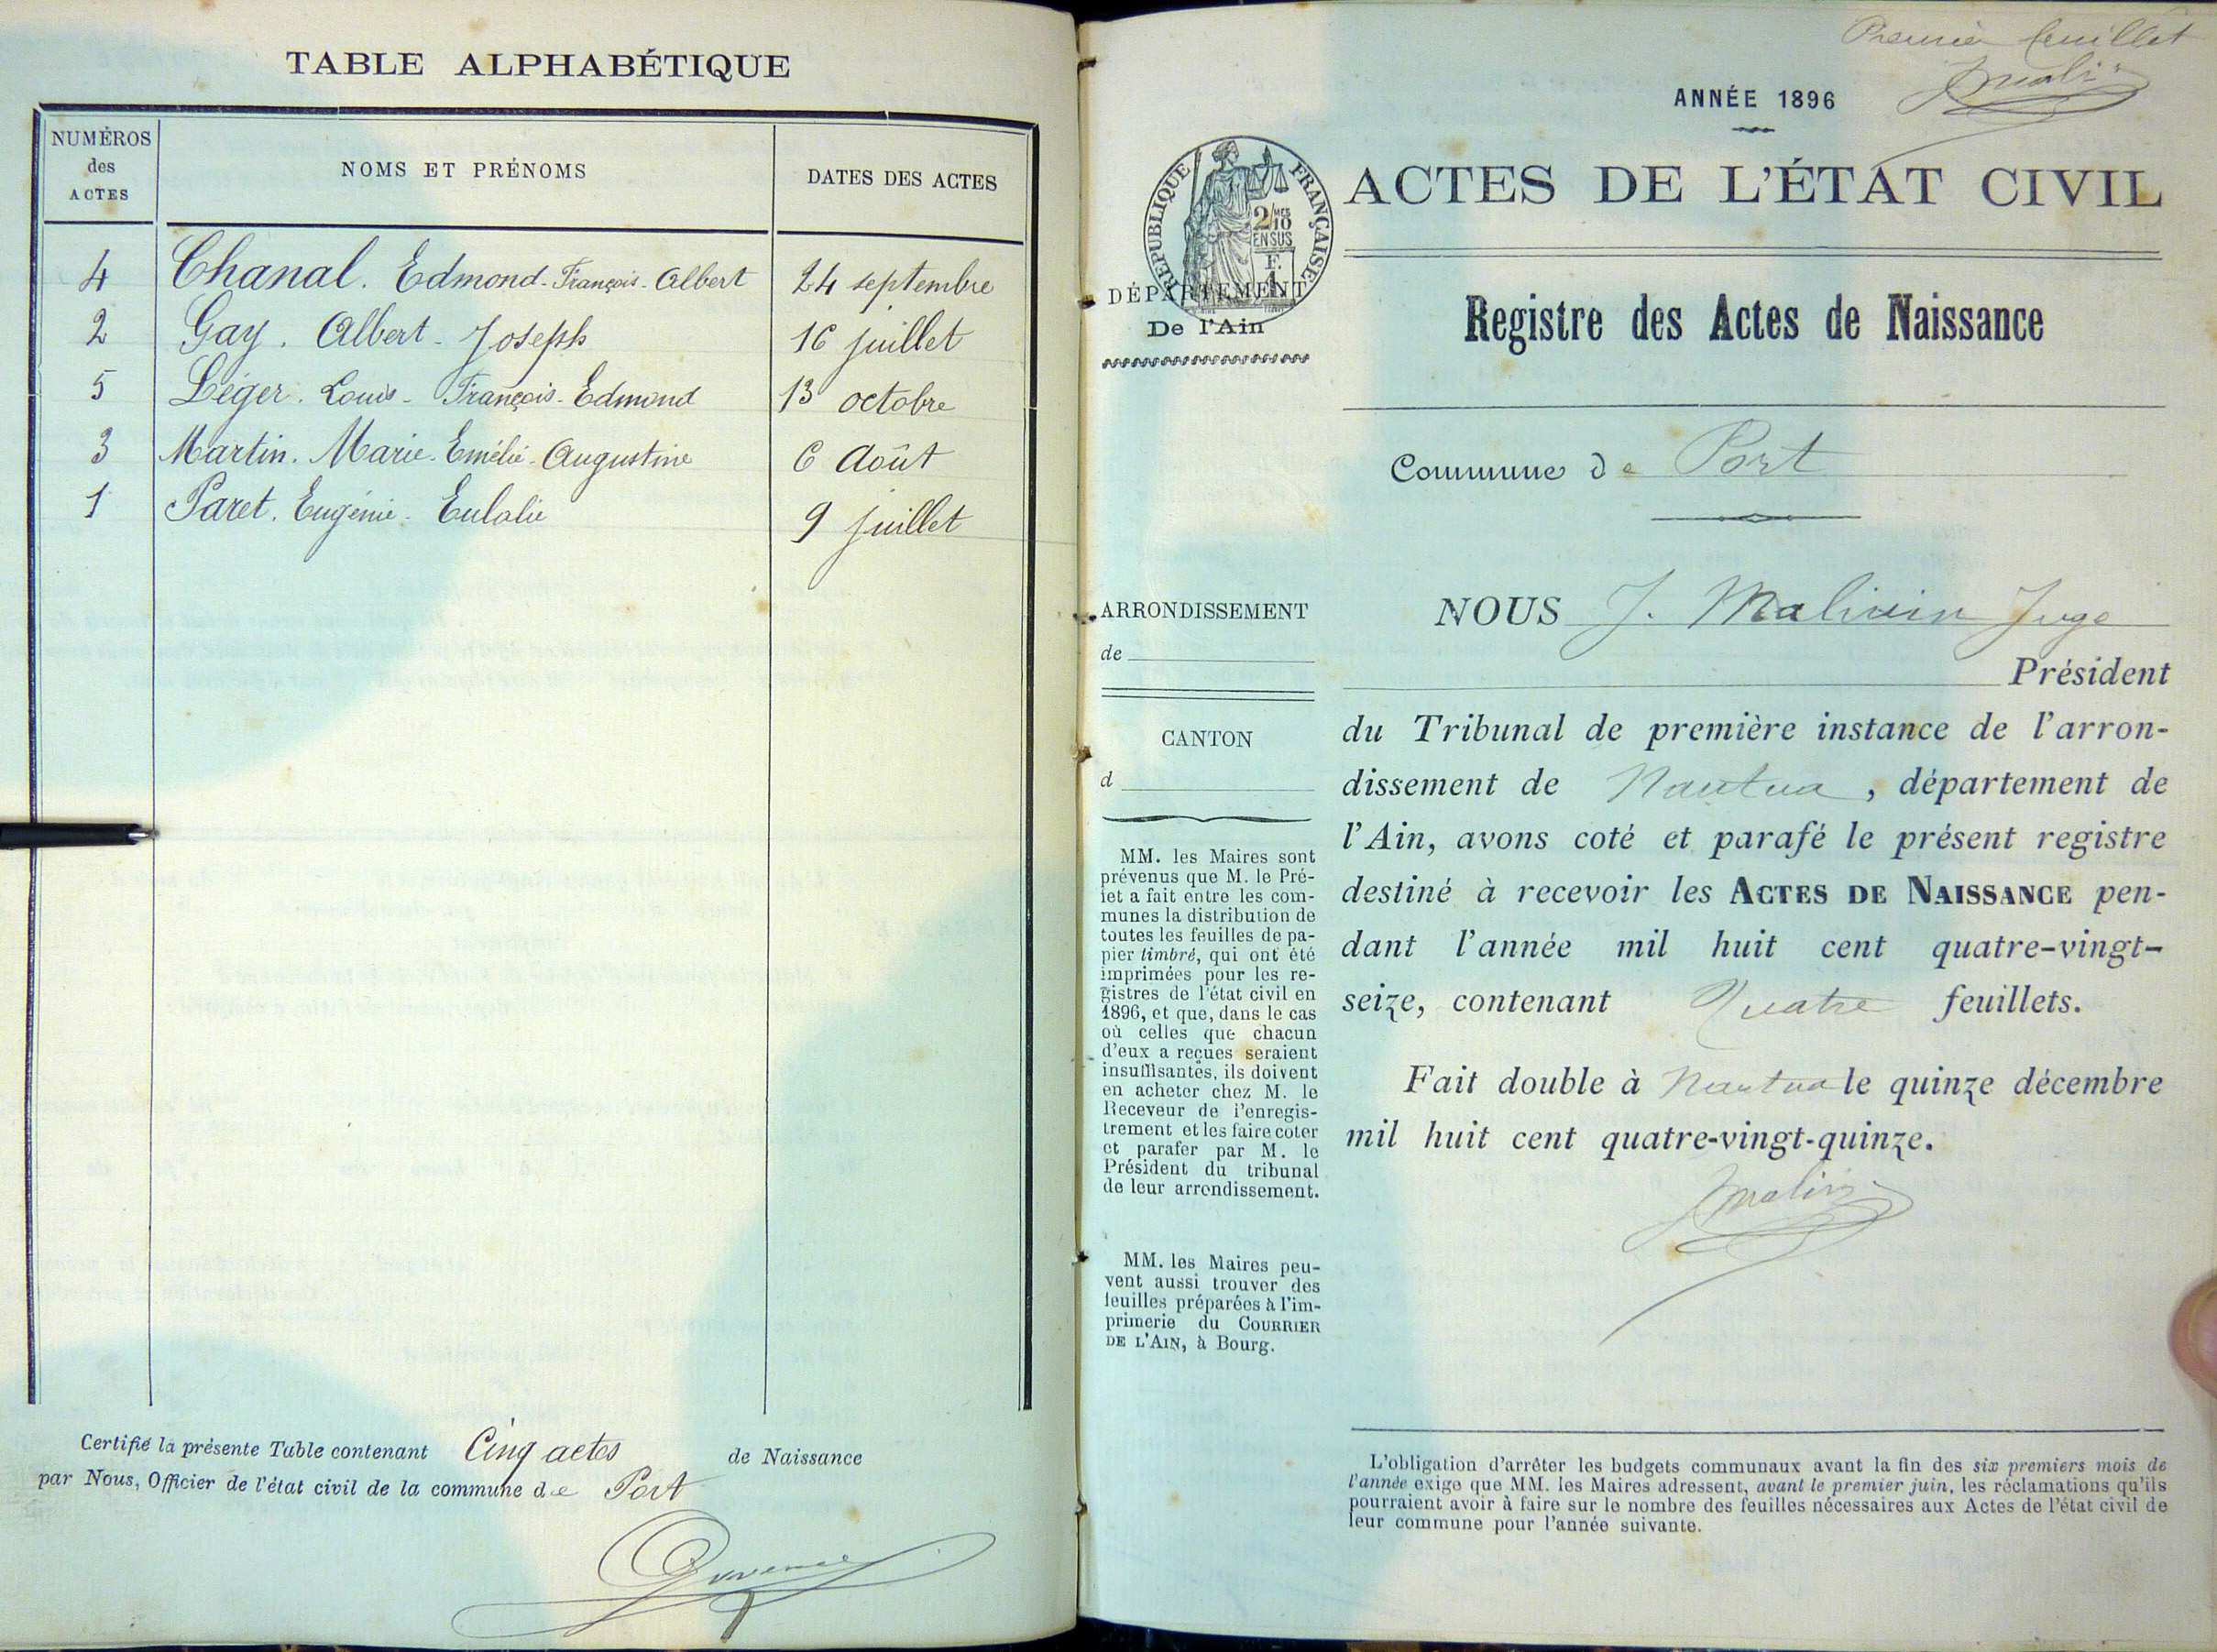 TABLE ALPHABÉTIQUE
NUMÉROS
des
ACTES
NOMS ET PRÉNOMS
DATES DES ACTES
4 Chanal. Edmond-François-Albert 24 septembre
2 Gay. Albert-Joseph 16 juillet
5 Léger. Louis-François-Edmond 13 octobre
3 Martin. Marie-Emélie-Augustine 6 Août
1 Paret. Eugénie-Eulalie 9 juillet
Certifié la présente Table contenant Cinq actes de Naissance
par Nous, Officier de l'état civil de la commune de Port
Premier feuillet
ANNÉE 1896
RÉPUBLIQUE FRANÇAISE
2/10 MES
EN SUS
F.
1
DÉPARTEMENT
De l'Ain
ACTES DE L'ÉTAT CIVIL
Registre des Actes de Naissance
Commune de Port
ARRONDISSEMENT
de
CANTON
d
MM. les Maires sont
prévenus que M. le Pré-
fet a fait entre les com-
munes la distribution de
toutes les feuilles de pa-
pier timbré, qui ont été
imprimées pour les re-
gistres de l'état civil en
1896, et que, dans le cas
où celles que chacun
d'eux a reçues seraient
insuffisantes, ils doivent
en acheter chez M. le
Receveur de l'enregis-
trement et les faire coter
et parafer par M. le
Président du tribunal
de leur arrondissement.
MM. les Maires peu-
vent aussi trouver des
feuilles préparées à l'im-
primerie du COURRIER
DE L'AIN, à Bourg.
NOUS J. Malivin Juge
Président
du Tribunal de première instance de l'arron-
dissement de Nantua, département de
l'Ain, avons coté et parafé le présent registre
destiné à recevoir les ACTES DE NAISSANCE pen-
dant l'année mil huit cent quatre-vingt-
seize, contenant Quatre feuillets.
Fait double à Nantua le quinze décembre
mil huit cent quatre-vingt-quinze.
L'obligation d'arrêter les budgets communaux avant la fin des six premiers mois de
l'année exige que MM. les Maires adressent, avant le premier juin, les réclamations qu'ils
pourraient avoir à faire sur le nombre des feuilles nécessaires aux Actes de l'état civil de
leur commune pour l'année suivante.